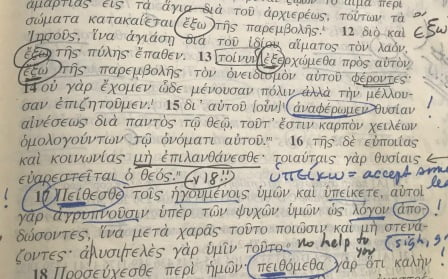 ἁμαρτίας εἰς τὰ ἅγια διὰ τοῦ ἀρχιερέως, τούτων τὰ
σώματα κατακαίεται ἔξω τῆς παρεμβολῆς. 12 διὸ καὶ ἔξω
Ἰησοῦς, ἵνα ἁγιάσῃ διὰ τοῦ ἰδίου αἵματος τὸν λαόν,
ἔξω τῆς πύλης ἔπαθεν. 13 τοίνυν ἐξερχώμεθα πρὸς αὐτὸν
ἔξω τῆς παρεμβολῆς τὸν ὀνειδισμὸν αὐτοῦ φέροντες·
14 οὐ γὰρ ἔχομεν ὧδε μένουσαν πόλιν ἀλλὰ τὴν μέλλου-
σαν ἐπιζητοῦμεν. 15 δι' αὐτοῦ [οὖν] ἀναφέρωμεν θυσίαν !
αἰνέσεως διὰ παντὸς τῷ θεῷ, τοῦτ' ἔστιν καρπὸν χειλέων
ὁμολογούντων τῷ ὀνόματι αὐτοῦ. 16 τῆς δὲ εὐποιΐας
καὶ κοινωνίας μὴ ἐπιλανθάνεσθε· τοιαύταις γὰρ θυσίαις
εὐαρεστεῖται ὁ θεός. v 18!! ὑπείκω = accept
! 17 Πείθεσθε τοῖς ἡγουμένοις ὑμῶν καὶ ὑπείκετε, αὐτοὶ
γὰρ ἀγρυπνοῦσιν ὑπὲρ τῶν ψυχῶν ὑμῶν ὡς λόγον ἀπο- !
δώσοντες, ἵνα μετὰ χαρᾶς τοῦτο ποιῶσιν καὶ μὴ στενά-
ζοντες· ἀλυσιτελὲς γὰρ ὑμῖν τοῦτο. no help to you (sigh,
18 Προσεύχεσθε περὶ ἡμῶν· πειθόμεθα γὰρ ὅτι καλὴν